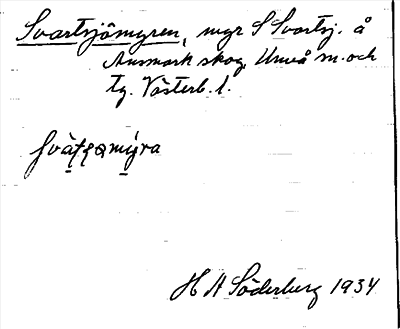 Svartsjömyren, myr S Svartsj. å
Ansmark skog, Umeå sn. och
tg. Västerb. l.
H A Söderberg 1934